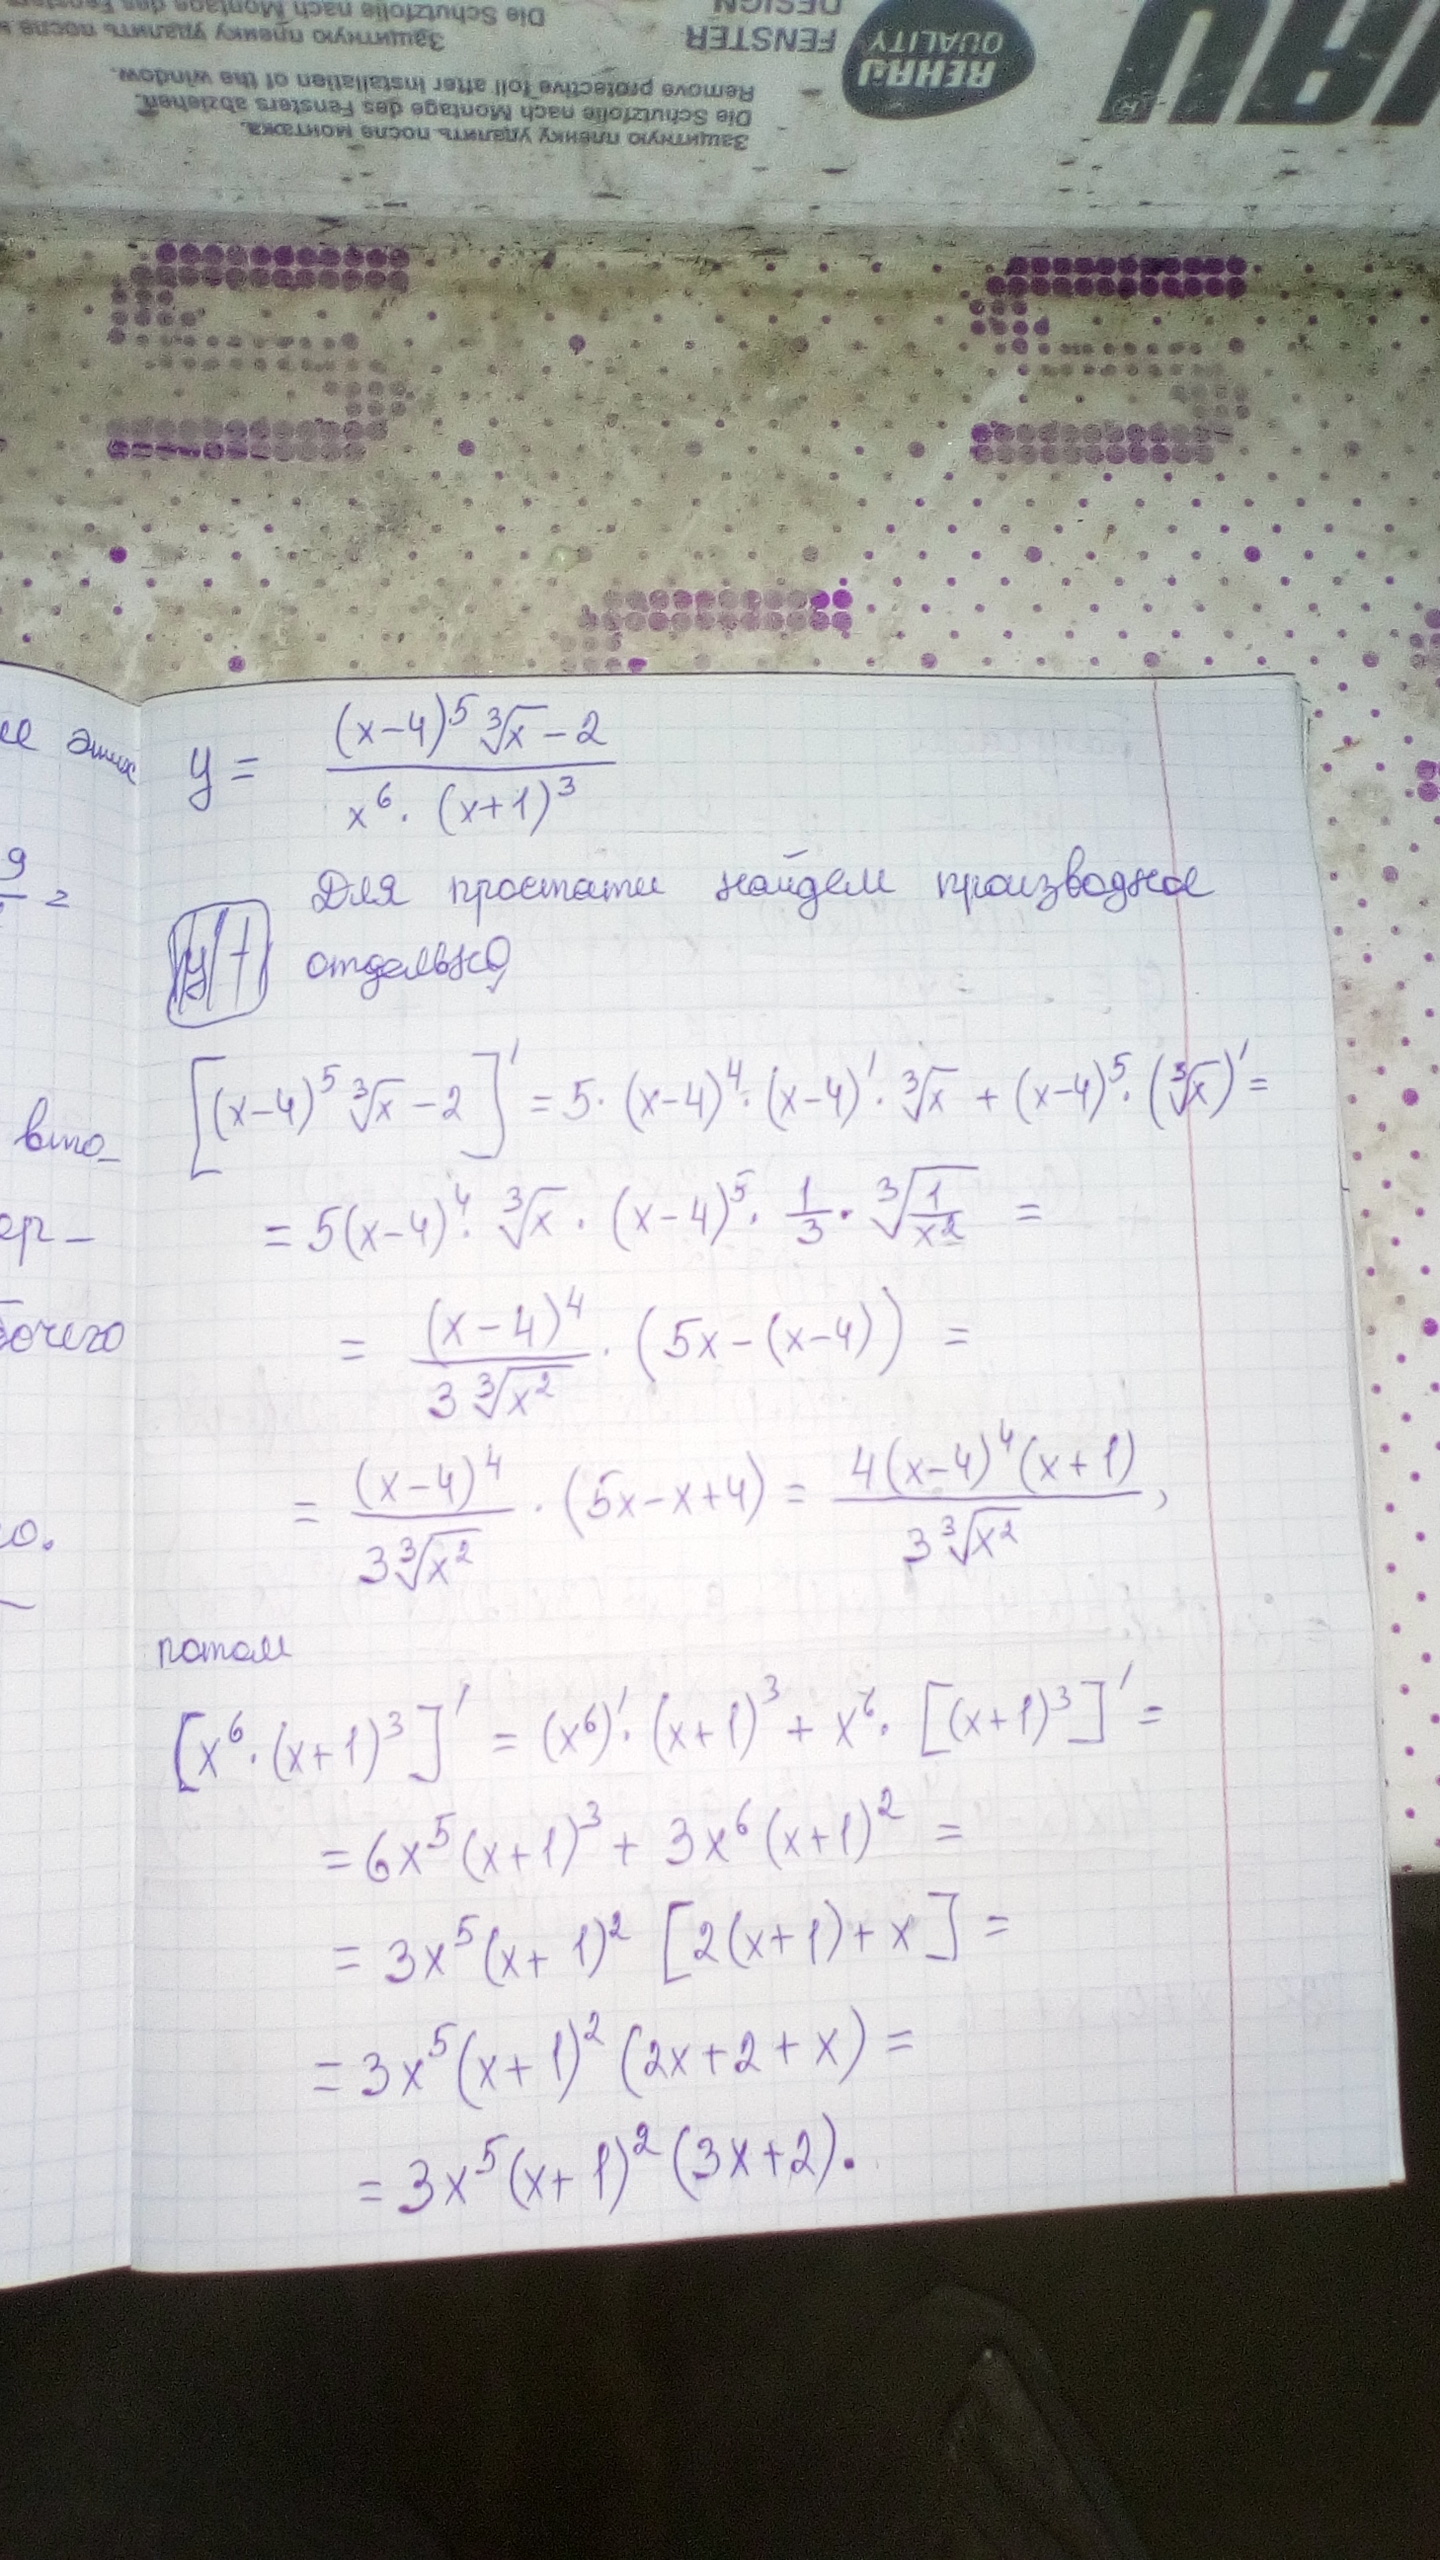 Die Schutzfolie nach Montage des Fensters
Защитную пленку удалить после
Remove protective foil after installation of the window.
Die Schutzfolie nach Montage des Fensters abziehen.
Защитную пленку удалить после монтажа.
FENSTER
DESIGN
REHAU
QUALITY
y = \frac{(x-4)^5 \sqrt[3]{x} - 2}{x^6 \cdot (x+1)^3}
Для простоты найдем производное
отдельно,
[(x-4)^5 \sqrt[3]{x} - 2]' = 5 \cdot (x-4)^4 \cdot (x-4)' \cdot \sqrt[3]{x} + (x-4)^5 \cdot (\sqrt[3]{x})' =
= 5(x-4)^4 \cdot \sqrt[3]{x} \cdot (x-4)^5 \cdot \frac{1}{3} \cdot \sqrt[3]{\frac{1}{x^2}} =
= \frac{(x-4)^4}{3\sqrt[3]{x^2}} \cdot (5x - (x-4)) =
= \frac{(x-4)^4}{3\sqrt[3]{x^2}} \cdot (5x - x + 4) = \frac{4(x-4)^4(x+1)}{3\sqrt[3]{x^2}},
потом
[x^6 \cdot (x+1)^3]' = (x^6)' \cdot (x+1)^3 + x^6 \cdot [(x+1)^3]' =
= 6x^5(x+1)^3 + 3x^6(x+1)^2 =
= 3x^5(x+1)^2 [2(x+1)+x] =
= 3x^5(x+1)^2 (2x+2+x) =
= 3x^5(x+1)^2 (3x+2).